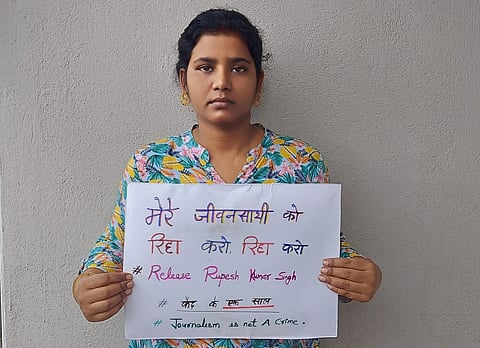 मेरे जीवनसाथी को
रिहा करो, रिहा करो
# Release Rupesh Kumar Singh
# कैद के एक साल
# Journalism is not A Crime.